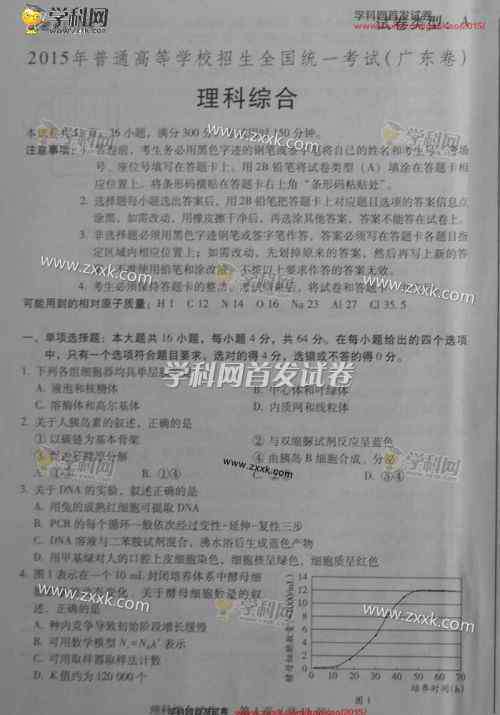 学科网首发试卷
试卷类型：A
2015年普通高等学校招生全国统一考试(广东卷)
理科综合
小题，满分300分
150分钟。
注意事项：
考生务必用黑色字迹的钢笔或
将自己的姓名和考生号、
号、座位号填写在答题卡上。用2B铅笔将试卷类型（A）填涂在答题卡相
应位置上。将条形码横贴在答题卡右上角“条形码粘贴处”。
2. 选择题每小题选出答案后，用2B铅笔把答题卡上对应题目选项的答案信息点
涂黑，如需改动，用橡皮擦干净后，再选涂其他答案，答案不能答在试卷上。
3. 非选择题必须用黑色字迹钢笔或签字笔作答，答案必须写在答题卡各题目指
定区域内相应位置上；如需改动，先划掉原来的答案，然后再写上新的答
使用铅笔和涂改液。不按以上要求作答的答案无效。
4. 考生必须保持答题卡的整洁。考试结束后，将试卷和答题卡
可能用到的相对原子质量：H 1 C 12 N 14 O 16 Na 23 Al 27 Cl 35.5
一、单项选择题：本大题共16小题，每小题4分，共64分。在每小题给出的四个选项
中，只有一个选项符合题目要求，选对的得4分，选错或不答的得0分。
1. 下列各组细胞器均具单层膜的是
A. 液泡和核糖体
B. 中心体和叶绿体
C. 溶酶体和高尔基体
D. 内质网和线粒体
2. 关于人胰岛素的叙述，正确的是
① 以碳链为基本骨架
② 与双缩脲试剂反应呈蓝色
③
④ 由胰岛B细胞合成、分泌
A. ①
B. ①④
C.
D. ③④
3. 关于DNA的实验，叙述正确的是
A. 用兔的成熟红细胞可提取DNA
B. PCR的每个循环一般依次经过变性-延伸-复性三步
C. DNA溶液与二苯胺试剂混合，沸水浴后生成蓝色产物
D. 用甲基绿对人的口腔上皮细胞染色，细胞核呈绿色，细胞质呈红色
4. 图1表示在一个10 mL封闭培养体系中酵母细
变化，关于酵母细胞数量的叙
述，正确的是
A. 种内竞争导致初始阶段增长缓慢
B. 可用数学模型 Nt=N0λt 表示
C. 可用取样器取样法计数
D. K值约为120 000个
酵母细胞数量(×1000/mL)
14
12
10
8
6
4
2
0
0 10 20 30 40 50 60 70
培养时间(h)
图1
学科网首发试卷
学科网
www.zxxk.com
www.zxxk.com
学科网首发试卷
学科网
学科网
www.zxxk.com
学科网
www.zxxk.com
学科网首发试卷